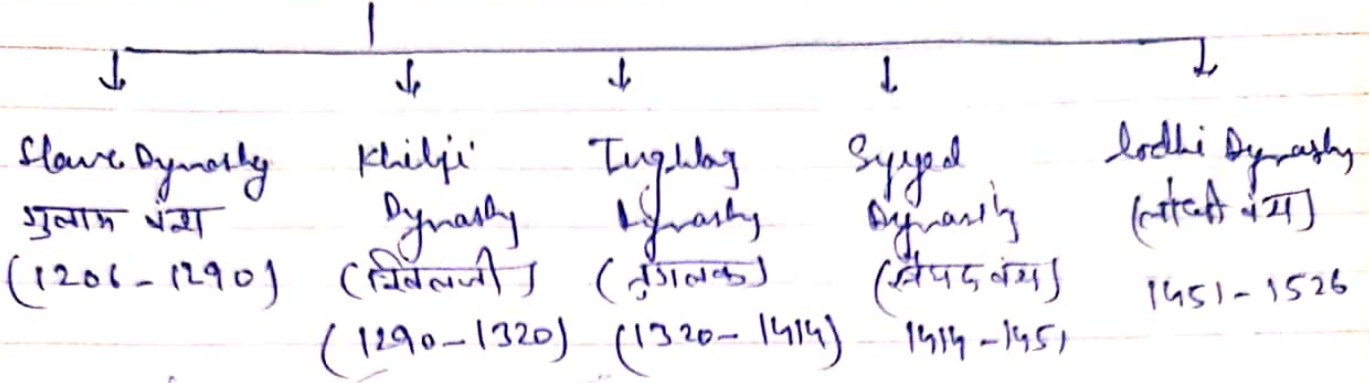 Slave Dynasty
गुलाम वंश
(1206-1290)
Khilji
Dynasty
(खिलजी)
(1290-1320)
Tughlaq
Dynasty
(तुगलक)
(1320-1414)
Syyed
Dynasty
(सैयद वंश)
1414-1451
lodhi Dynasty
(लोदी वंश)
1451-1526